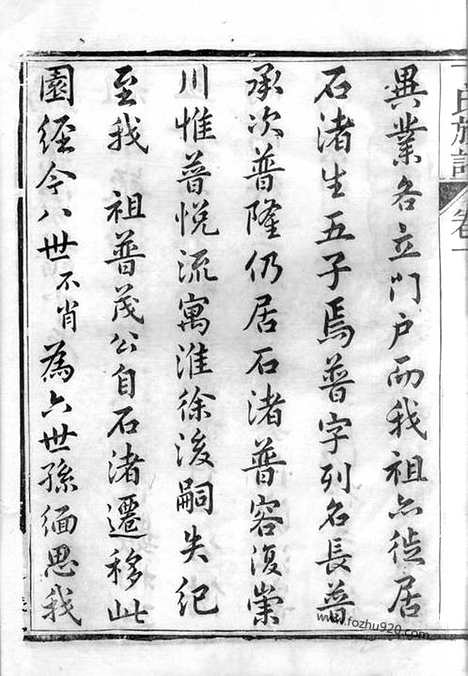 異業各立門户而我祖亦徙居
石渚生五子焉普字列名長普
承次普隆仍居石渚普容復業
川惟普悦流寓淮徐後嗣失紀
至我 祖普茂公自石渚遷移此
園經今八世不肖為六世孫緬思我
氏族譜 卷一
www.fozhu920.com